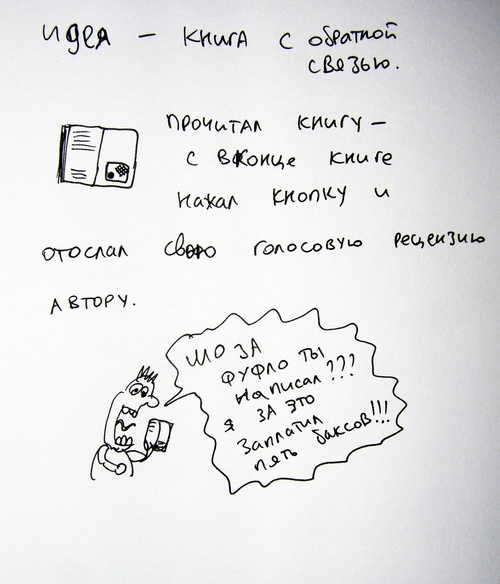 идея - книга с обратной
связью.
прочитал книгу -
с вконце книге
нажал кнопку и
отослал свою голосовую рецензию
автору.
шо за
фуфло ты
написал???
я за это
заплатил
пять баксов!!!